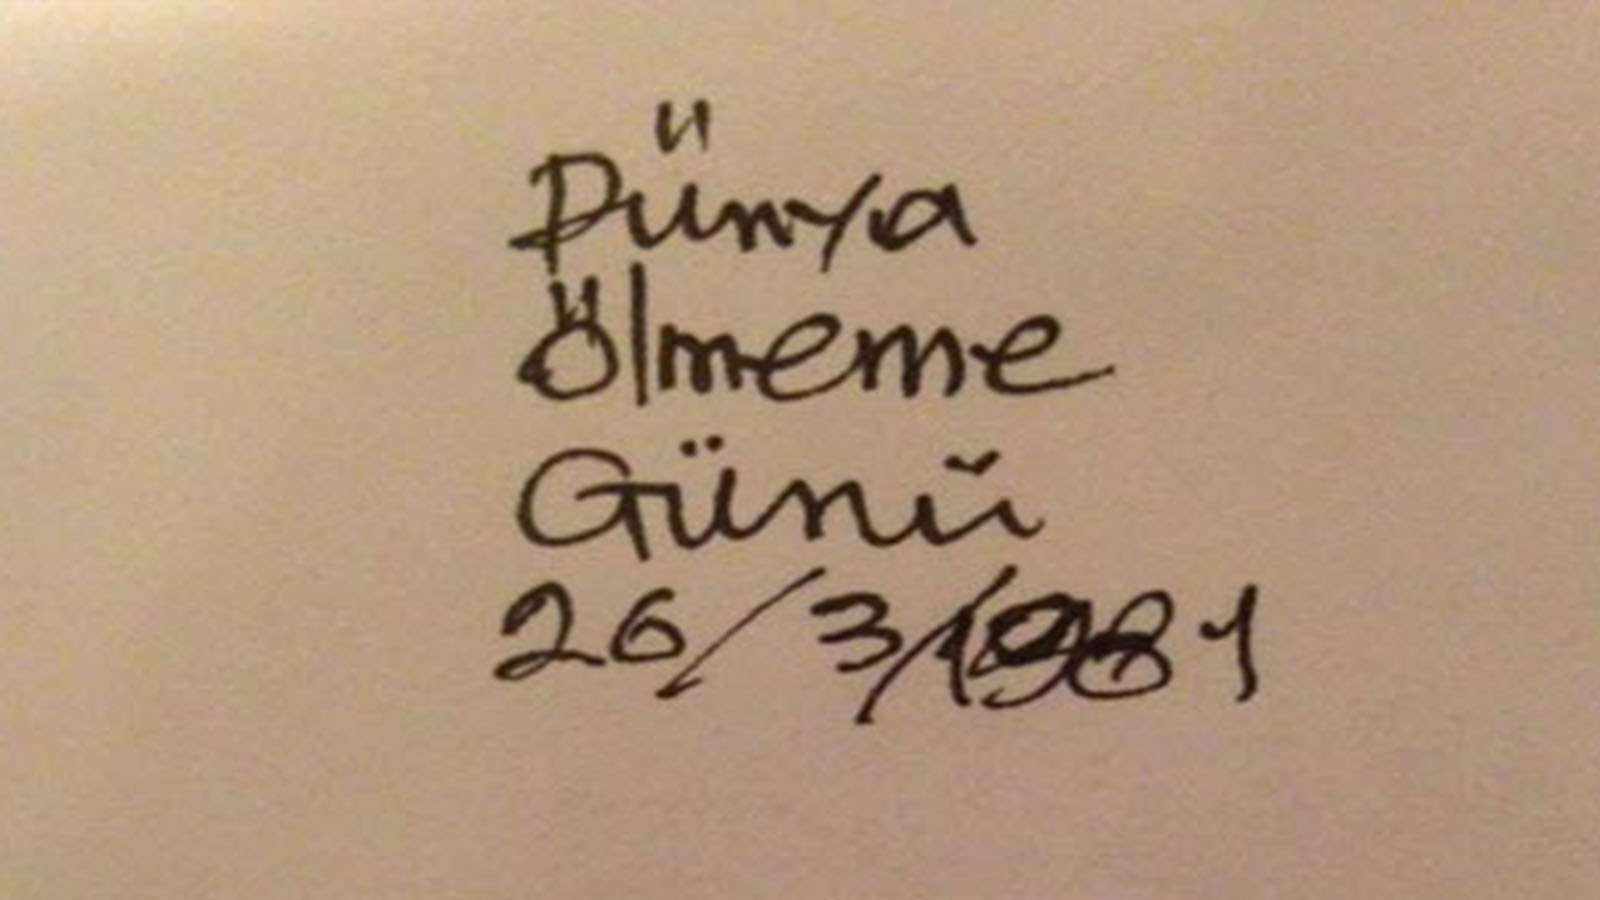 Dünya
Ölmeme
Günü
26/3/1981